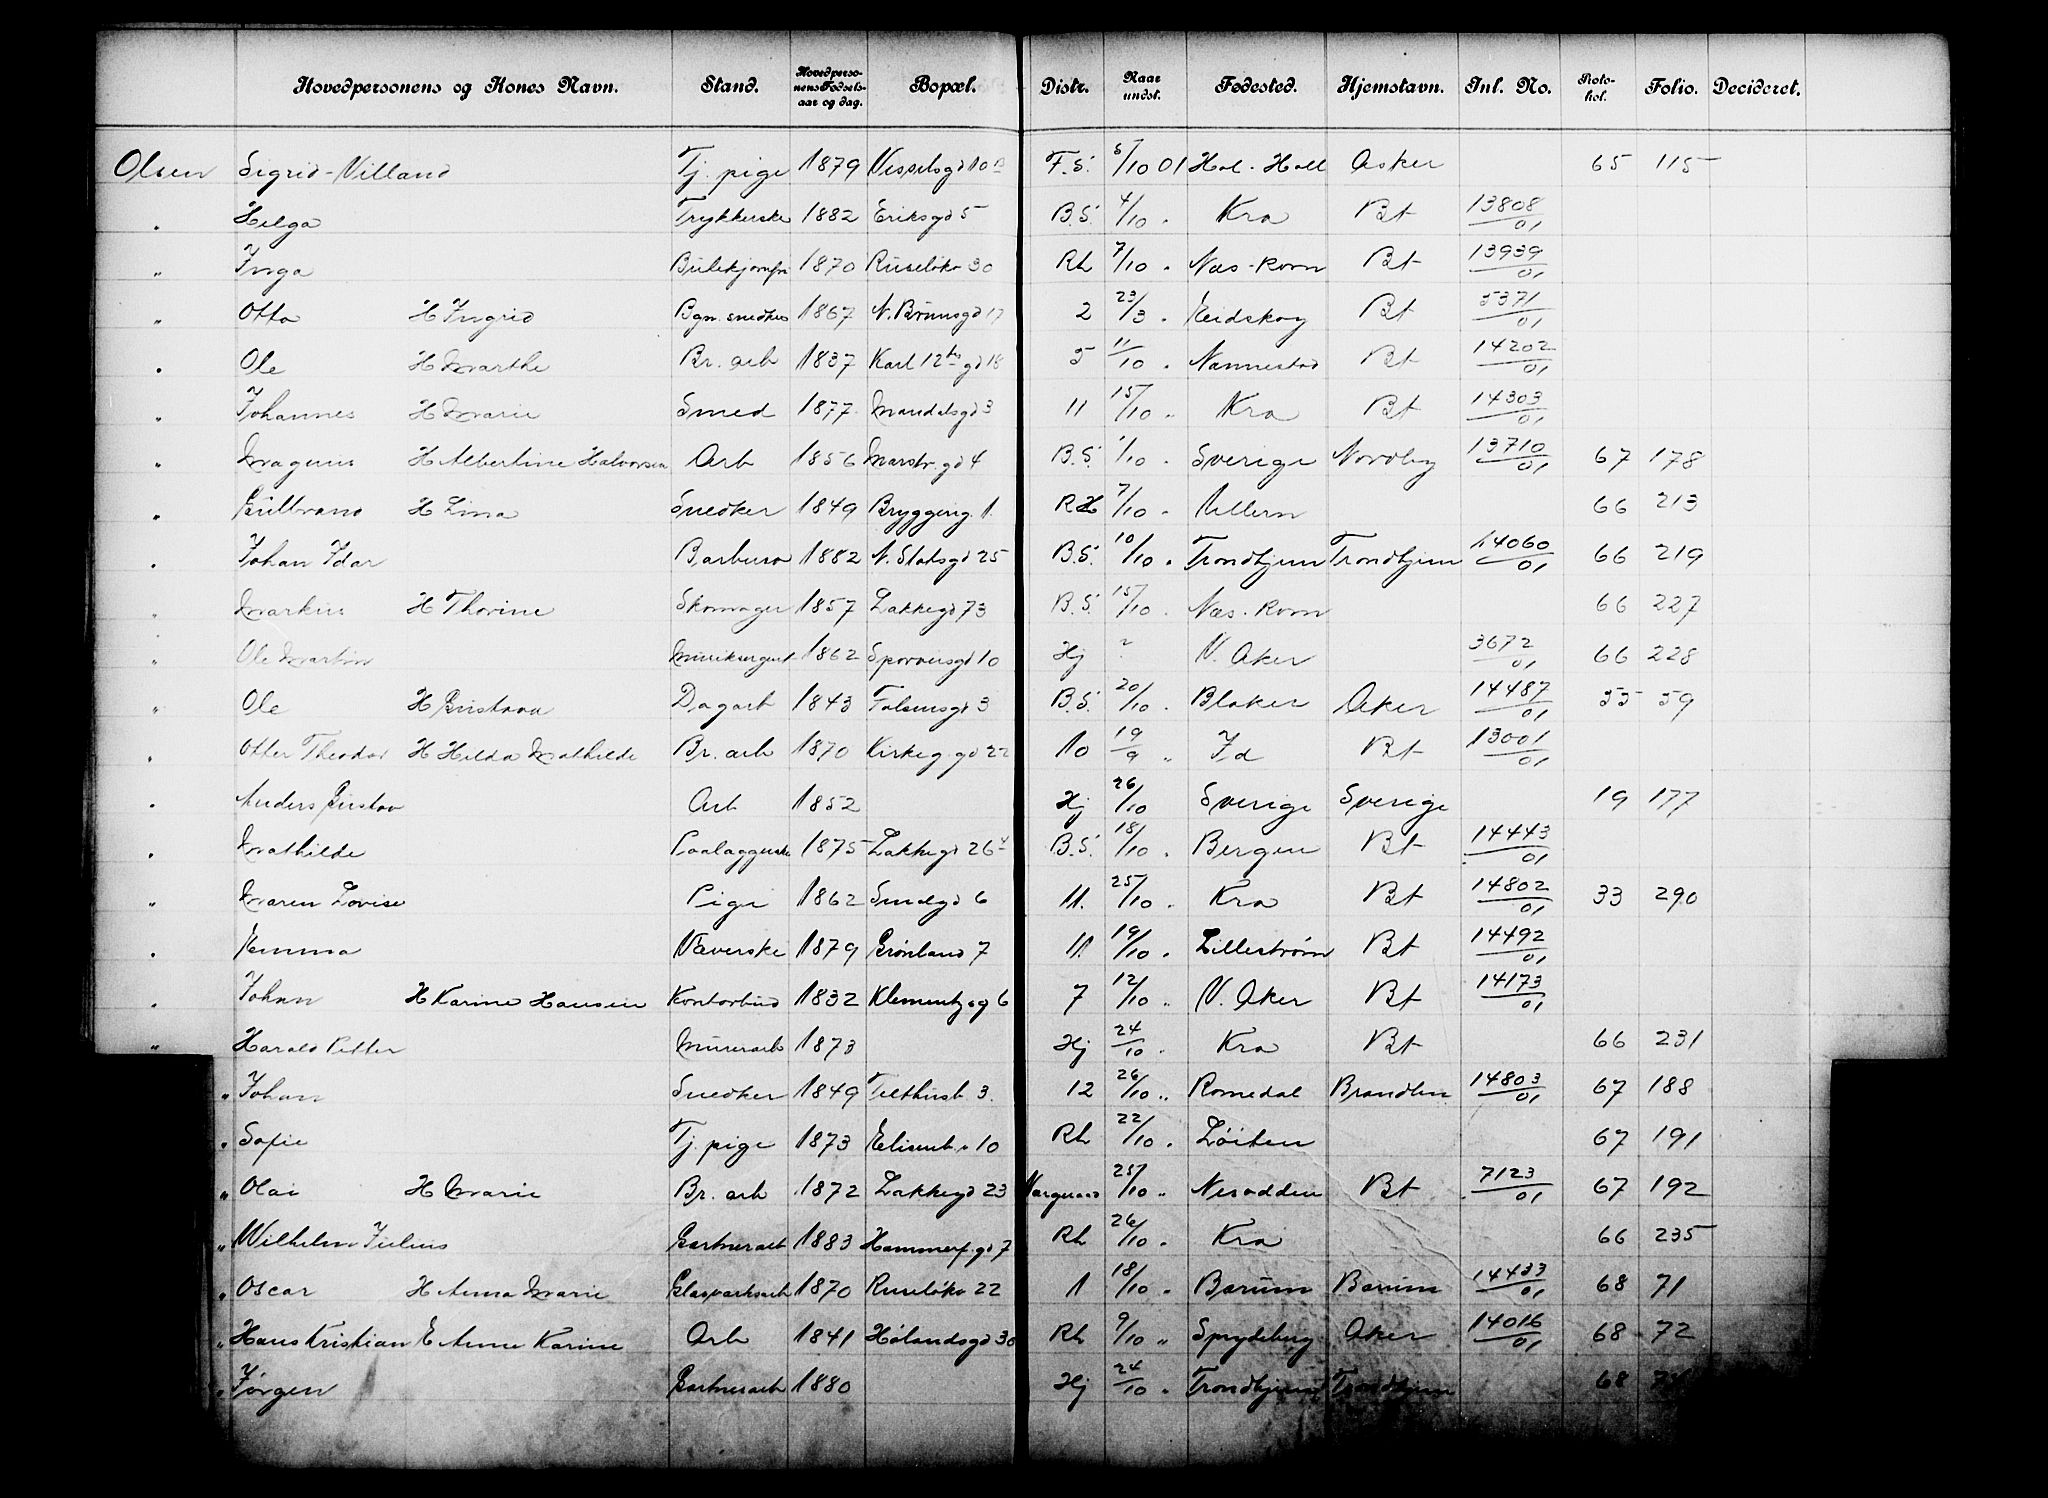 Hovedpersonens og Kones Navn. Stand. Hovedperso-nens Fødsels-aar og dag. Bopæl. Distr. Naar undst. Fødested. Hjemstavn. Inl. No. Proto-kol. Folio. Decideret.
Olsen Sigrid-Villand Tj. pige 1879 Vesselsgd 10 F.S. 5/10 01 Hol-Holl Asker 65 115
" Helga Trykkerske 1882 Eriksgd 5 B.S. 4/10 " Kra Bt 13808/01
" Inga 1870 Ruseløkv 30 Rh 7/10 " Næs-Rom Bt 13939/01
" Otto H Ingrid Bgn. snedker 1867 N. Brunsgd 17 2 23/3 " Eidskog Bt 5371/01
" Ole H Marthe Br. arb 1837 Karl 12tes gd 18 5 11/10 " Nannestad Bt 14202/01
" Johannes H Marie Smed 1877 Mandalsgd 3 11 15/10 " Kra Bt 14303/01
" Magnus H Albertine Halvorsen Arb 1856 Marstr. gd 4 B.S. 1/10 " Sverige Nordby 13710/01 67 178
" Gulbrand H Lina Snedker 1849 Bryggerig. 1. RH 7/10 " Ullern 66 213
" Johan Idar Barbersv 1882 N. Slotsgd 25 B.S. 10/10 " Trondhjem Trondhjem 14060/01 66 219
" Markus H Thorine Skomager 1857 Lakkegd 73 B.S. 15/10 " Næs-Rom 66 227
" Ole Martin Musiksergent 1862 Sporveisgd 10 Hj ? V. Aker 3672/01 66 228
" Ole H Gustava Dagarb 1843 Falsensgd 3 B.S. 20/10 " Blaker Aker 14487/01 55 59
" Otter Theodor H Hilda Mathilde Br. arb 1870 Kirkeg. gd 22 10 19/9 " Id Bt 13001/01
" Anders Gustav Arb 1852 Hj 26/10 Sverige Sverige 19 177
" Mathilde Paalæggerske 1875 Lakkegd 26 B.S. 18/10 " Bergen Bt 14443/01
" Maren Lovise Pige 1862 Smedgd 6 11. 25/10 " Kra Bt 14802/01 33 290
" Emma Væverske 1879 Grønland 7 11. 19/10 " Lillestrøm Bt 14492/01
" Johan H Karine Hansen Kontorbud 1832 Klementsgd 6 7 12/10 " V. Aker Bt 14173/01
" Harald Petter Murerarb 1873 Hj 24/10 " Kra Bt 66 231
" Johan Snedker 1849 Telthusb 3. 12 26/10 " Romedal Brandbu 14803/01 67 188
" Sofie Tj. pige 1873 Elisenb. v 10 Rh 22/10 " Løiten 67 191
" Olai H Marie Br. arb 1872 Lakkegd 23 25/10 " Nesodden Bt 7123/01 67 192
" Wilhelm Julius Gartnerarb 1883 Hammerf. gd 7 Rh 26/10 " Kra 66 235
" Oscar H Anna Marie Glasværksarb 1870 Ruseløkv 22 1 18/10 " Bærum Bærum 14433/01 68 71
" Hans Kristian E Anne Karine Arb 1841 Hølandsgd 30 Rh 9/10 " Spydeberg Aker 14016/01 68 72
" Jørgen Gartnerarb 1880 Hj 24/10 " Trondhjem Trondhjem 68